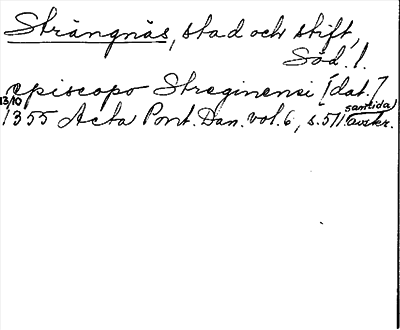 Strängnäs, stad och stift,
Söd. l.
episcopo Streginensi [dat.]
13/10 1355 Acta Pont. Dan. vol. 6, s. 511. samtida avskr.